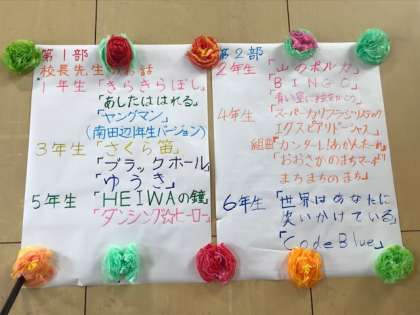 第1部
校長先生のお話
1年生「きらきらぼし」
「あしたははれる」
「ヤングマン」
(南田辺1年生バージョン)
3年生「さくら笛」
「ブラックホール」
「ゆうき」
5年生「HEIWAの鐘」
「ダンシング☆ヒーロー」
第2部
2年生「山のポルカ」
「BINGO」
4年生「スーパーカリフラジリスティック
エクスピアリドーシャス」
組曲「カンターレ!
「おおさかのまちマーチ」
まちまちのまち」
6年生「世界はあなたに
笑いかけている」
「Code Blue」